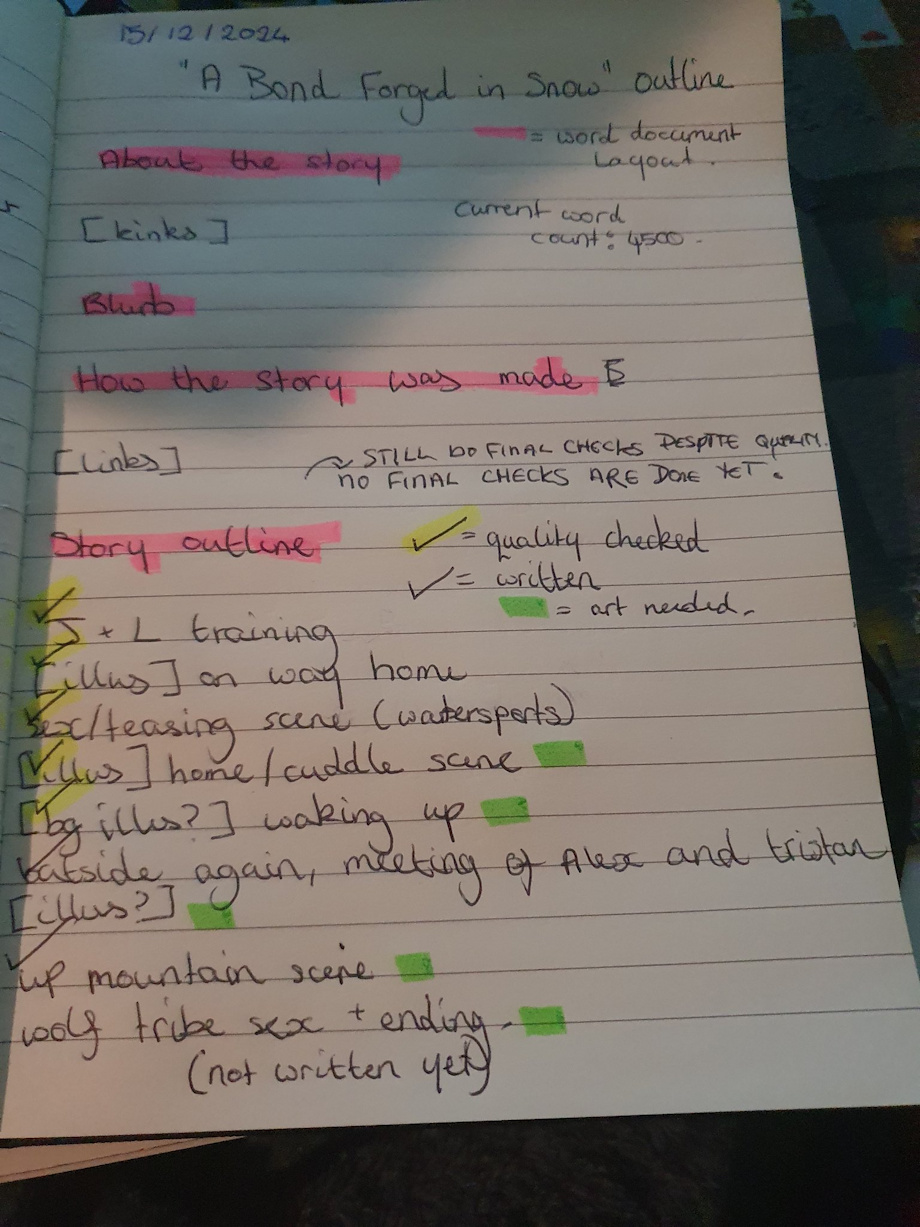 15/12/2024
"A Bond Forged in Snow" outline
= word document
Layout.
About the story
current word
count: 4500.
[kinks]
Blurb
How the story was made
[links]
~ STILL DO FINAL CHECKS DESPITE QUALITY.
NO FINAL CHECKS ARE DONE YET.
Story outline
✓ = quality checked
✓ = written
= art needed.
✓ J + L training
✓ [illus] on way home
✓ sex/teasing scene (watersports)
✓ [illus] home/cuddle scene
✓ [bg illus?] waking up
✓ outside again, meeting of Alex and tristan
[illus?]
✓ up mountain scene
wolf tribe sex + ending.
(not written yet)